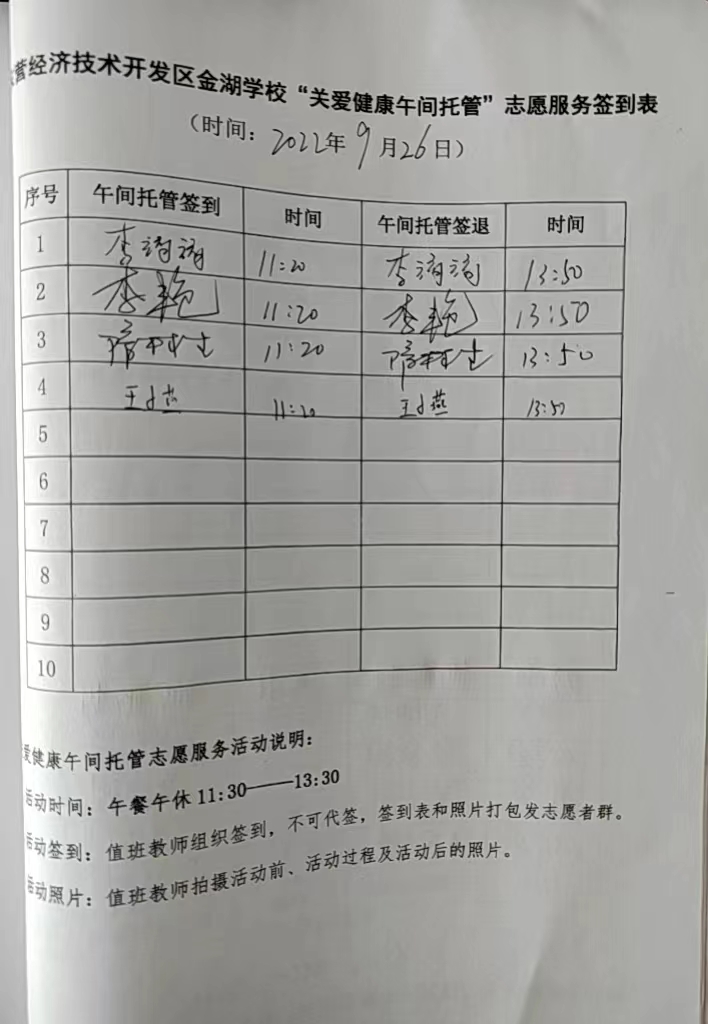 营经济技术开发区金湖学校“关爱健康午间托管”志愿服务签到表
（时间：2022年9月26日）
序号 午间托管签到 时间 午间托管签退 时间
1 李 11:20 李 13:50
2 李艳 11:20 李艳 13:50
3 11:20 13:50
4 王小燕 11:20 王小燕 13:50
5
6
7
8
9
10
爱健康午间托管志愿服务活动说明：
活动时间：午餐午休11:30——13:30
活动签到：值班教师组织签到，不可代签，签到表和照片打包发志愿者群。
活动照片：值班教师拍摄活动前、活动过程及活动后的照片。